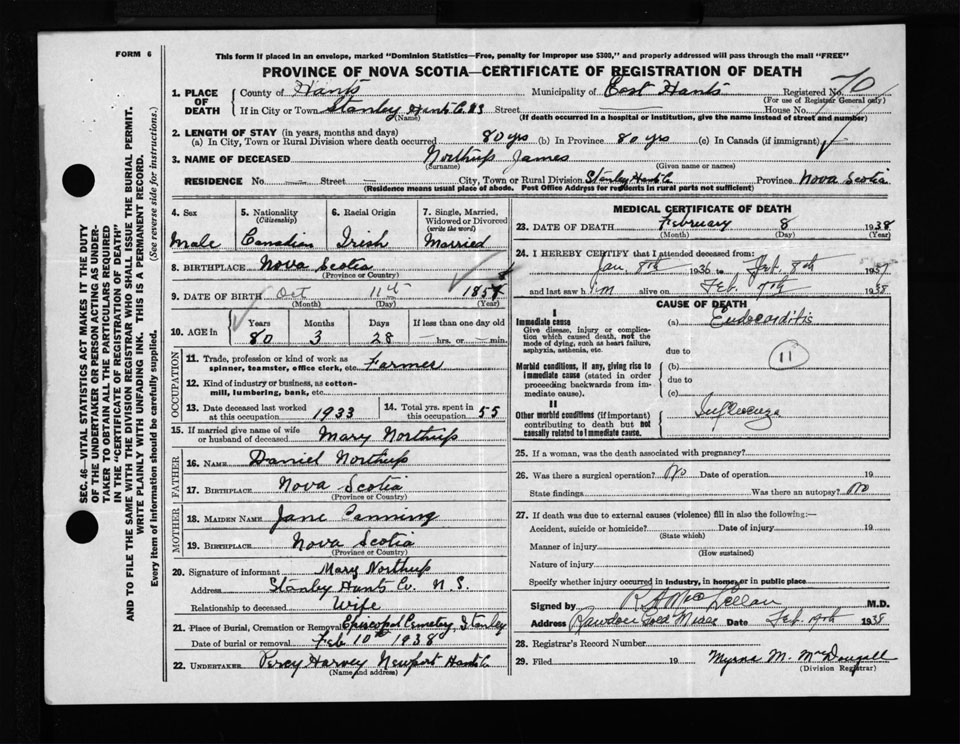 FORM 6
This form if placed in an envelope, marked "Dominion Statistics—Free, penalty for improper use $300," and properly addressed will pass through the mail "FREE"
PROVINCE OF NOVA SCOTIA—CERTIFICATE OF REGISTRATION OF DEATH
SEC. 46—VITAL STATISTICS ACT MAKES IT THE DUTY
OF THE UNDERTAKER OR PERSON ACTING AS UNDER-
TAKER TO OBTAIN ALL THE PARTICULARS REQUIRED
IN THE "CERTIFICATE OF REGISTRATION OF DEATH"
AND TO FILE THE SAME WITH THE DIVISION REGISTRAR WHO SHALL ISSUE THE BURIAL PERMIT.
WRITE PLAINLY WITH UNFADING INK. THIS IS A PERMANENT RECORD.
Every item of information should be carefully supplied. (See reverse side for instructions.)
1. PLACE OF DEATH County of Hants Municipality of East Hants Registered No. 70
(For use of Registrar General only)
If in City or Town Stanley Hants Co. N S Street House No.
(Name) (If death occurred in a hospital or institution, give the name instead of street and number)
2. LENGTH OF STAY (in years, months and days)
(a) In City, Town or Rural Division where death occurred 80 yrs (b) In Province 80 yrs (c) In Canada (if immigrant)
3. NAME OF DECEASED Northup James
(Surname) (Given name or names)
RESIDENCE No. Street City, Town or Rural Division Stanley Hants Co Province Nova Scotia
(Residence means usual place of abode. Post Office Address for residents in rural parts not sufficient)
4. Sex Male
5. Nationality (Citizenship) Canadian
6. Racial Origin Irish
7. Single, Married, Widowed or Divorced (write the word) Married
8. BIRTHPLACE Nova Scotia
(Province or Country)
9. DATE OF BIRTH Oct 11th 185
(Month) (Day) (Year)
10. AGE in Years Months Days If less than one day old
80 3 28 hrs. or min.
OCCUPATION
11. Trade, profession or kind of work as spinner, teamster, office clerk, etc. Farmer
12. Kind of industry or business, as cotton-mill, lumbering, bank, etc.
13. Date deceased last worked at this occupation 1933
14. Total yrs. spent in this occupation 55
15. If married give name of wife or husband of deceased Mary Northup
FATHER
16. NAME Daniel Northup
17. BIRTHPLACE Nova Scotia
(Province or Country)
MOTHER
18. MAIDEN NAME Jane Canning
19. BIRTHPLACE Nova Scotia
(Province or Country)
20. Signature of informant Mary Northup
Address Stanley Hants Co. N. S.
Relationship to deceased Wife
21. Place of Burial, Cremation or Removal Episcopal Cemetry, Stanley
Date of burial or removal Feb 10th 1938
22. UNDERTAKER Percy Harvey Newport Hants Co
(Name and address)
MEDICAL CERTIFICATE OF DEATH
23. DATE OF DEATH February 8 1938
(Month) (Day) (Year)
24. I HEREBY CERTIFY that I attended deceased from:
Jan 8th 1936 to Feb. 8th 19
and last saw him alive on Feb. 7th 1938
CAUSE OF DEATH
I
Immediate cause
Give disease, injury or complication which caused death, not the mode of dying, such as heart failure, asphyxia, asthenia, etc.
(a) Endocarditis
due to
Morbid conditions, if any, giving rise to immediate cause (stated in order proceeding backwards from immediate cause).
(b) 11
due to
(c)
II
Other morbid conditions (if important) contributing to death but not causally related to immediate cause.
Influenza
25. If a woman, was the death associated with pregnancy?
26. Was there a surgical operation? No Date of operation 19
State findings Was there an autopsy? No
27. If death was due to external causes (violence) fill in also the following:—
Accident, suicide or homicide? Date of injury 19
(State which)
Manner of injury
(How sustained)
Nature of injury
Specify whether injury occurred in Industry, in home, or in public place
Signed by R A MacLellan M.D.
Address Rawdon Gold Mines Date Feb. 9th 1938
28. Registrar's Record Number
29. Filed 19 Myrna M. McDougall
(Division Registrar)